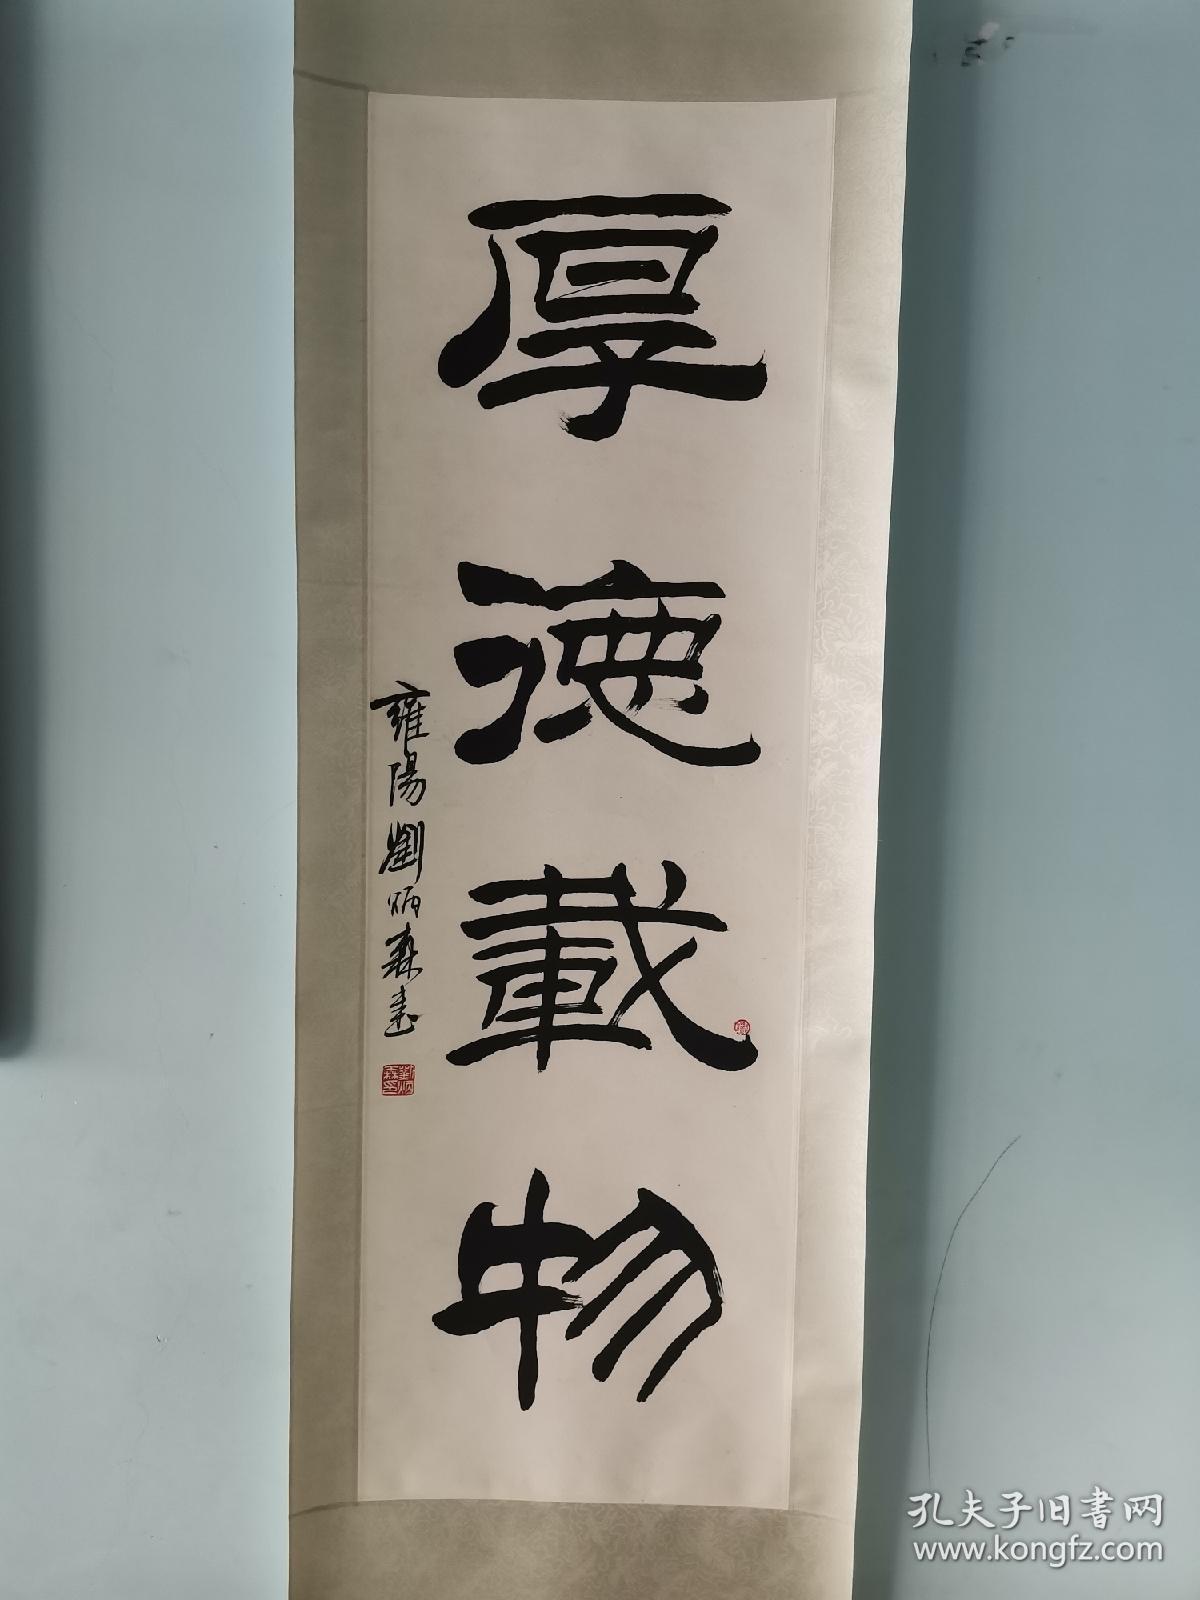 厚德載物
雍陽劉炳森書
劉炳森印
孔夫子旧书网
www.kongfz.com